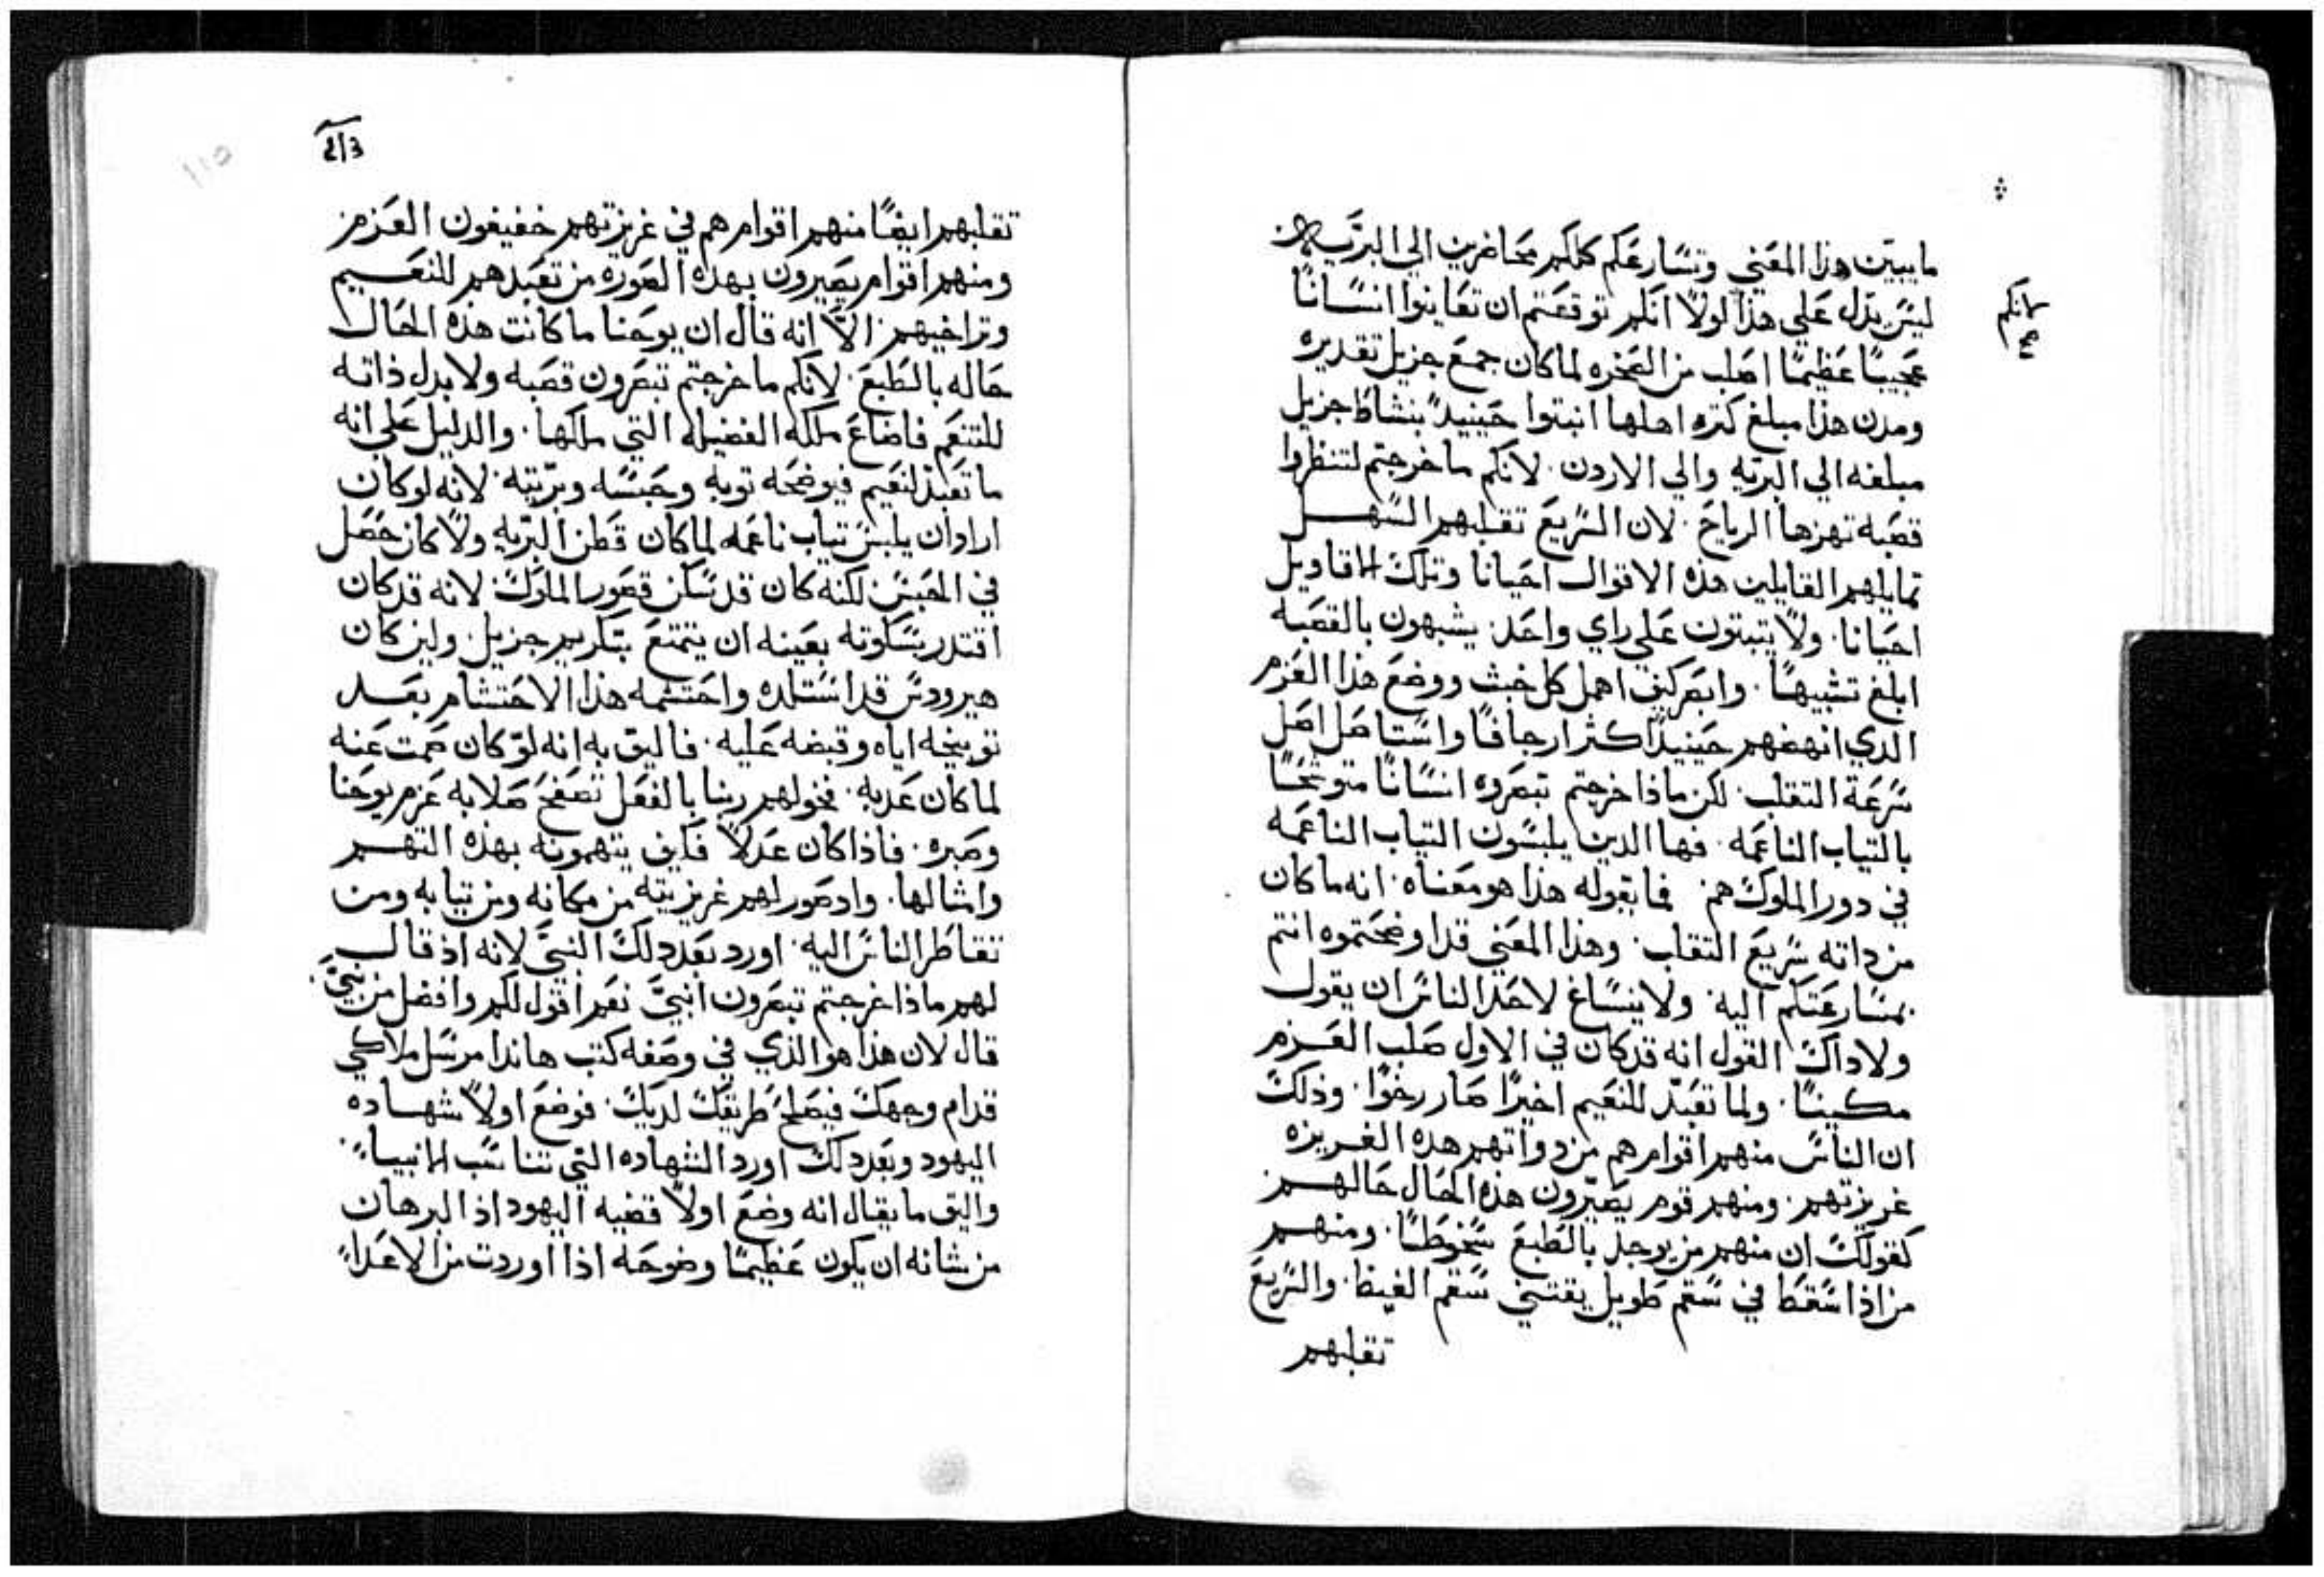 ما يبين هذا المعني وتسارعكم كلكم محاضرين الي البريه
ليس يدل علي هذا لولا انكم توقعتم ان تعاينوا انسانًا
لانكم
عجيبًا عظيمًا اصلب من الصخره لما كان جمع جزيل تقديره
ومدن هذا مبلغ كتره اهلها انبتوا حينيدٍ بنشاط جزيل
مبلغه الي البريه والي الاردن. لانكم ما خرجتم لتنظروا
قصبه تهزها الرياح. لان السريع تقلبهم السهل
تمايلهم القايلين هذه الاقوال احيانا وتلك الاقاويل
احيانا. ولا يتبتون علي راي واحد. يشبهون بالقصبه
ابلغ تشبيهًا. وابصر كيف اهمل كل خبث ووضع هذا العزم
الدي انهضهم حينيدٍ اكثر ارجافًا واستاصل اصل
سرعة التقلب. لكن ماذا خرجتم تبصروه انسانًا متوشحًا
بالتياب الناعمه. فها الدين يلبسون التياب الناعمه
في دور الملوك هم فما يقوله هذا هو معناه. انه ما كان
من داته سريع التقلب. وهذا المعني قد اوضحتموه انتم
بمسارعتكم اليه. ولا ينساغ لاحد الناس ان يقول
ولا داك القول انه قد كان في الاول صلب العزم
مكينًا. ولما تعبد للنعيم اخيرًا صار رخوًا. وذلك
ان الناس منهم اقوام هم من دواتهم هده الغريزه
غريزتهم. ومنهم قوم يصيرون هذه الحال حالهم
كقولك ان منهم من يوجد بالطبع سخوطًا. ومنهم
من اذا سقط في سقم طويل يقتني سقم الغيظ. والسريع
تقلبهم
تقلبهم ايضًا منهم اقوام هم في غريزتهم خفيفون العزم
ومنهم اقوام يصيرون بهذه الصوره من تعبدهم للنعيم
وتراخيهم. الا انه قال ان يوحنا ما كانت هذه الحال
حاله بالطبع. لانكم ما خرجتم تبصرون قصبه ولا بدل ذاته
للتنعم فاضاع ملكه الفضيله التي ملكها. والدليل علي انه
ما تعبد لنعيم فيوضحه توبه وحبسه وبريته. لانه لو كان
اراد ان يلبس تياب ناعمه لما كان قطن البريه ولا كان حصل
في الحبس لكنه كان قد سكن قصور الملوك. لانه قد كان
اقتدر بسكوته بعينه ان يتمتع بتكريم جزيل. ولين كان
هيرودس قد استلده واحتشمه هذا الاحتشام بعد
توبيخه اياه وقبضه عليه. فاليق به انه لو كان صمت عنه
لما كان عدبه. فخولهم ربنا بالفعل تصفح صلابه عزم يوحنا
وصبره. فاذا كان عدلاً فكيف يتهمونه بهذه التهم
وامثالها. واد صور لهم غريزيته من مكانه ومن تيابه ومن
تقاطر الناس اليه. اورد بعد دلك النبي لانه اذ قال
لهم ماذا خرجتم تبصرون انبيً نعم اقول لكم وافضل من نبيً.
قال لان هذا هو الذي في وصفه كتب هاندا مرسل ملاكي
قدام وجهك فيصلح طريقك لديك. فوضع اولاً شهاده
اليهود وبعد دلك اورد الشهاده التي تناسب الانبياء.
واليق ما يقال انه وضع اولاً قضيه اليهود اذ البرهان
من شانه ان يكون عظيمًا وضوحه اذا اوردت من الاعداء